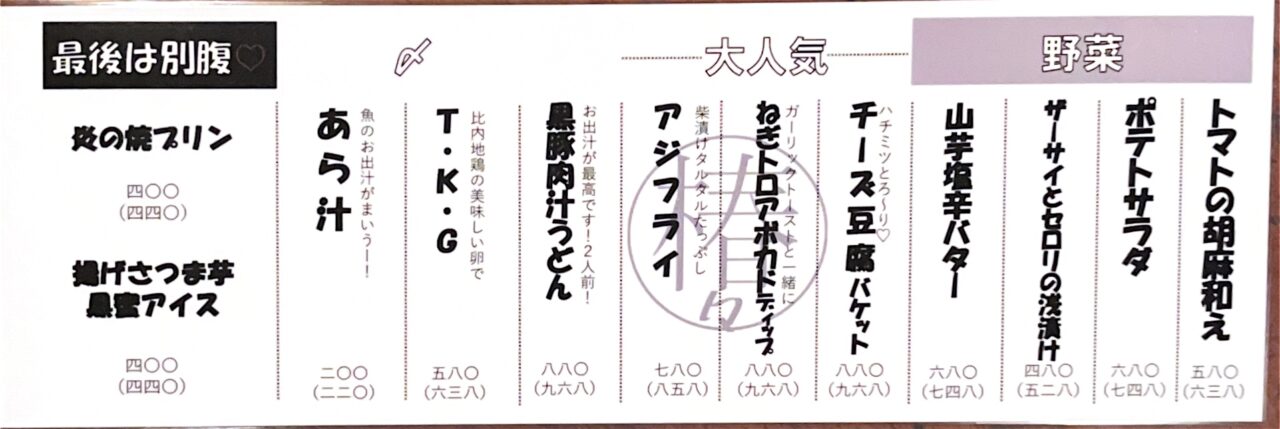 野菜
トマトの胡麻和え
五八〇
(六三八)
ポテトサラダ
六八〇
(七四八)
ザーサイとセロリの浅漬け
四八〇
(五二八)
山芋塩辛バター
六八〇
(七四八)
大人気
ハチミツとろ〜り♡
チーズ豆腐バケット
八八〇
(九六八)
ガーリックトーストと一緒に
ねぎトロアボカドディップ
八八〇
(九六八)
柴漬けタルタルたっぷし
アジフライ
七八〇
(八五八)
〆
お出汁が最高です!2人前!
黒豚肉汁うどん
八八〇
(九六八)
比内地鶏の美味しい卵で
T・K・G
五八〇
(六三八)
魚のお出汁がまいうー!
あら汁
二〇〇
(二二〇)
最後は別腹♡
炎の焼プリン
四〇〇
(四四〇)
揚げさつま芋
黒蜜アイス
四〇〇
(四四〇)
椿々